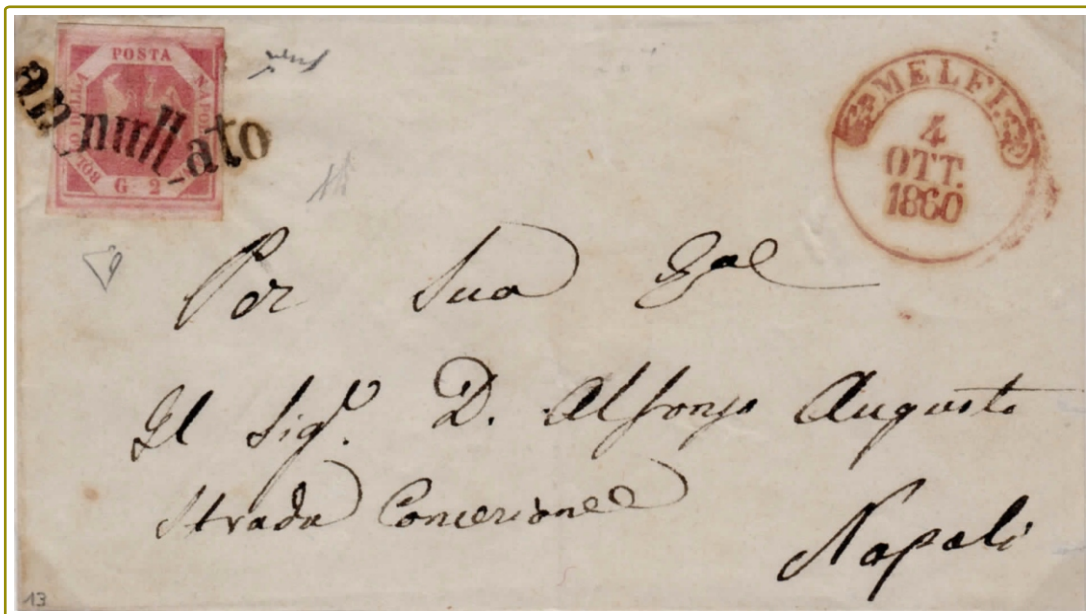 BOLLO DELLA POSTA NAPOLETANA
G. 2
annullato
MELFI.
4
OTT.
1860
Per Sua
Il Sig.r D. Alfonso Augusto
Strada Concezione
Napoli
13